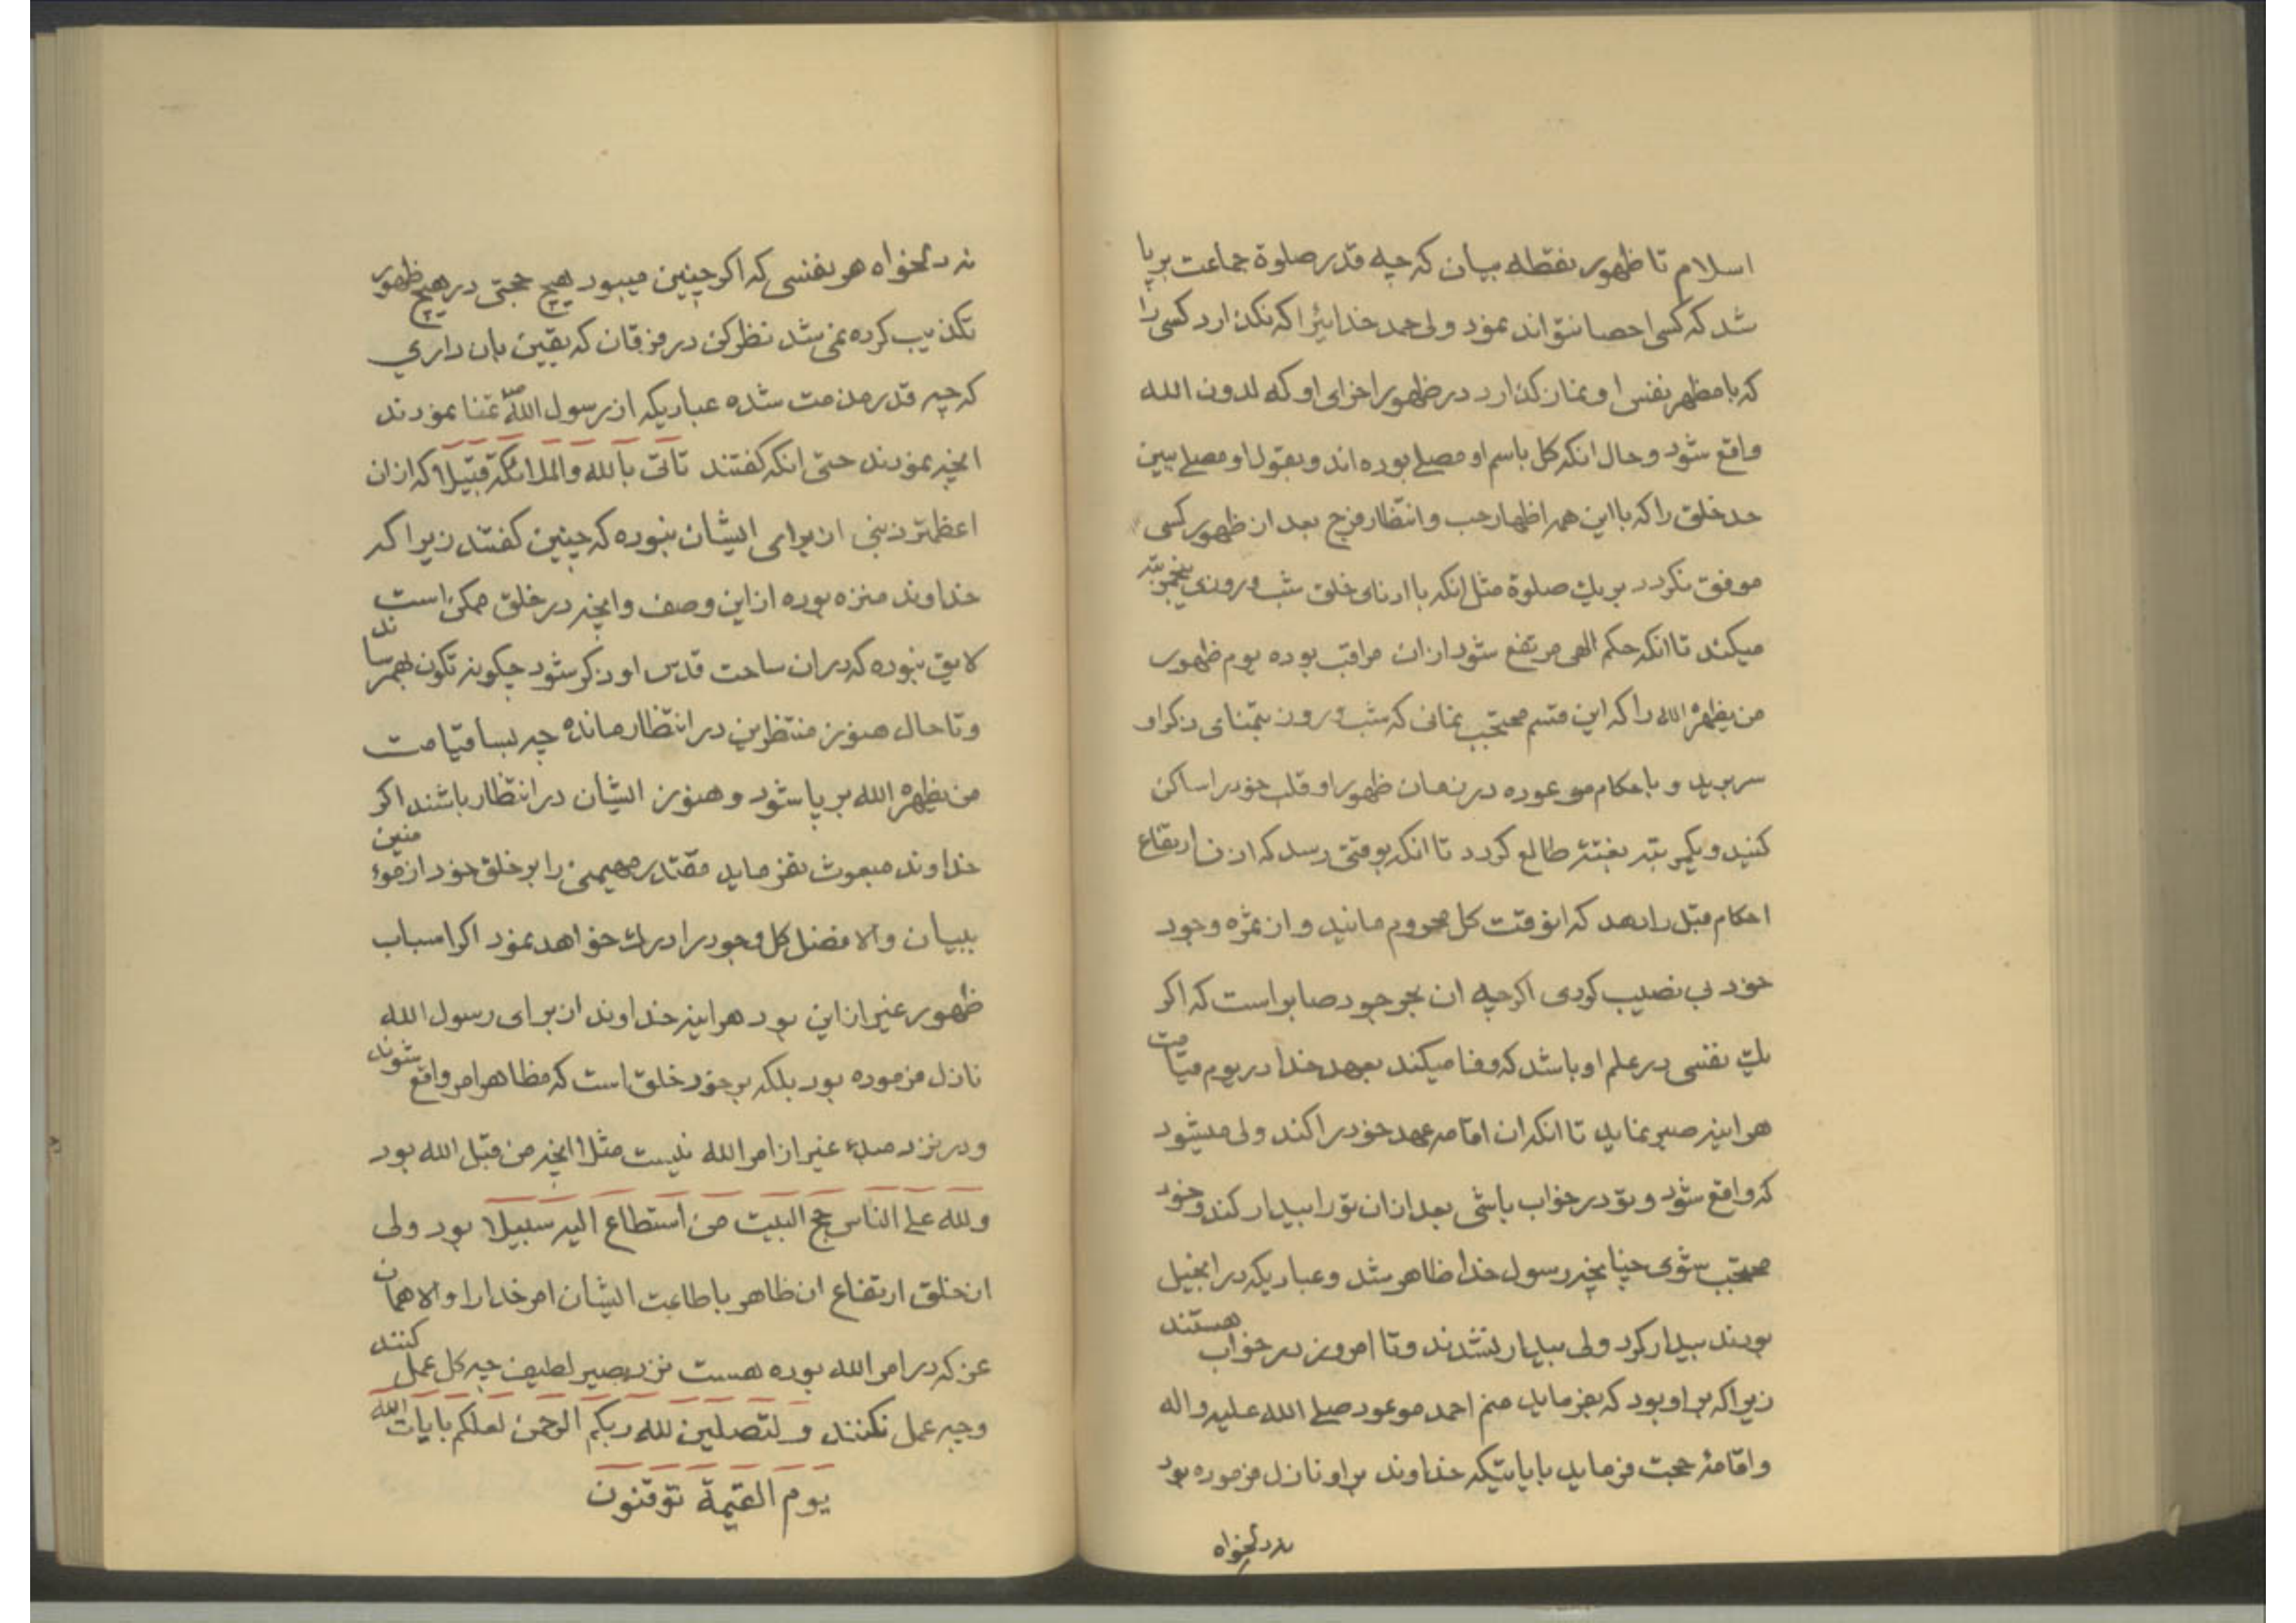 اسلام تا ظهور نقطه بیان که چه قدر صلوة جماعت برپا
شد که کسی احصا نتواند نمود ولی حمد خدائیرا که نگذارد کسی را
که با مظهر نفس او نماز گذارد در ظهور اخرای او که لدون الله
واقع شود و حال انکه کل باسم او مصلی بوده اند و بقول او مصلی ببین
حد خلق را که با این همه اظهار حب و انتظار فرج بعد از ظهور کسی
موفق نگردد بر یک صلوة مثل انکه با ادنای خلق شب و روزی پنجمرتبه
میکند تا انکه حکم الهی مرتفع شود از ان مراقب بوده یوم ظهور
من یظهره الله را که این قسم محتجب نمانی که شب و روز بتمنای ذکر او
سر برید و باحکام موعوده در زمان ظهور او قلب خود را ساکن
کنید و یکمرتبه بغتة طالع گردد تا انکه بوقتی رسد که اذن ارتفاع
احکام قبل را دهد که انوقت کل محروم مانید و از ثمره وجود
خود بی نصیب گردی اگرچه ان بحر جود صابر است که اگر
یک نفسی در علم او باشد که وفا میکند بعهد خدا در یوم قیامت
هراینه صبر نماید تا انکه ان اقامه عهد خود را کند ولی میشود
که واقع شود و تو در خواب باشی بعد از ان تو را بیدار کند و خود
محتجب شوی چنانچه رسول خدا ظاهر شد و عبادیکه در انجیل
بودند بیدار کرد ولی بیدار نشدند و تا امروز در خواب هستند
زیرا که بر او بود که بفرماید منم احمد موعود صلی الله علیه و اله
و اقامهٔ حجت فرماید بایاتیکه خداوند بر او نازل فرموده بود
نه دلخواه
نه دلخواه هر نفسی که اگر چنین میبود هیچ حجتی در هیچ ظهور
تکذیب کرده نمی شد نظر کن در فرقان که یقین بان داری
که چه قدر مذمت شده عبادیکه از رسول الله ص تمنا نمودند
انچه نمودند حتی انکه گفتند تاتی بالله و الملائکة قبیلا که از ان
اعظمتر ذنبی از برای ایشان نبوده که چنین گفتند زیرا که
خداوند منزه بوده از این وصف و انچه در خلق ممکن است
لایق نبوده که در ان ساحت قدس او ذکر شود چگونه تکون بهمرساند
و تا حال هنوز منتظرین در انتظار مانده چه بسا قیامت
من یظهره الله بر پا شود و هنوز ایشان در انتظار باشند اگر
خداوند مبعوث نفرماید مقتدر مهیمنی را بر خلق خود از مؤمنین
ببیان والا فضل کل وجود را درک خواهد نمود اگر اسباب
ظهور غیر از این بود هراینه خداوند از برای رسول الله
نازل فرموده بود بلکه بر خود خلق است که مظاهر امر واقع شوند
و در نزد مبدء غیر از امر الله نیست مثلا انچه من قبل الله بود
و لله علی الناس حج البیت من استطاع الیه سبیلا بود ولی
ان خلق ارتفاع ان ظاهر باطاعت ایشان امر خدا را والا همان
عز که در امر الله بوده هست نزد بصیر لطیف چه کل عمل کنند
و چه عمل نکنند و لتصلین لله ربکم الرحمن لعلکم بایات الله
یوم القیمة توقنون